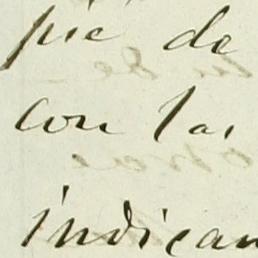 pie de
con las
indican